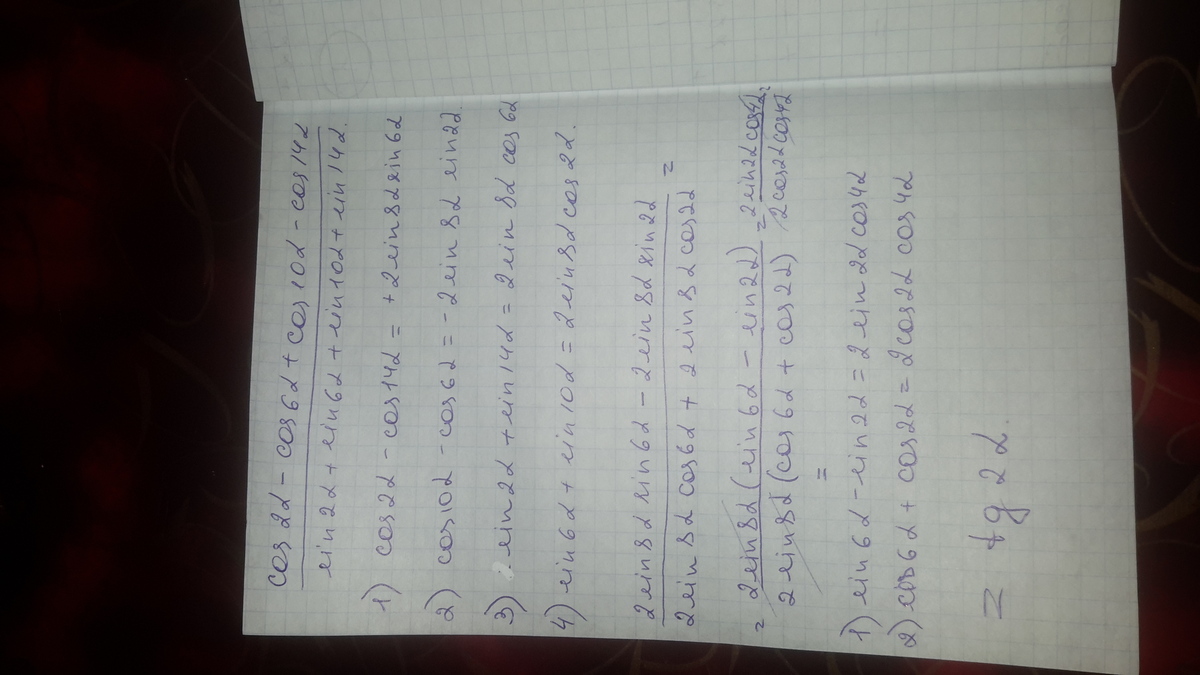 cos 2α - cos 6α + cos 10α - cos 14α
sin 2α + sin 6α + sin 10α + sin 14α.
1) cos 2α - cos 14α = + 2 sin 8α sin 6α
2) cos 10α - cos 6α = - 2 sin 8α sin 2α.
3) sin 2α + sin 14α = 2 sin 8α cos 6α
4) sin 6α + sin 10α = 2 sin 8α cos 2α.
2 sin 8α sin 6α - 2 sin 8α sin 2α
2 sin 8α cos 6α + 2 sin 8α cos 2α =
= 2 sin 8α (sin 6α - sin 2α) = 2 sin 2α cos 4α =
2 sin 8α (cos 6α + cos 2α) 2 cos 2α cos 4α
=
1) sin 6α - sin 2α = 2 sin 2α cos 4α
2) cos 6α + cos 2α = 2 cos 2α cos 4α
= tg 2α.